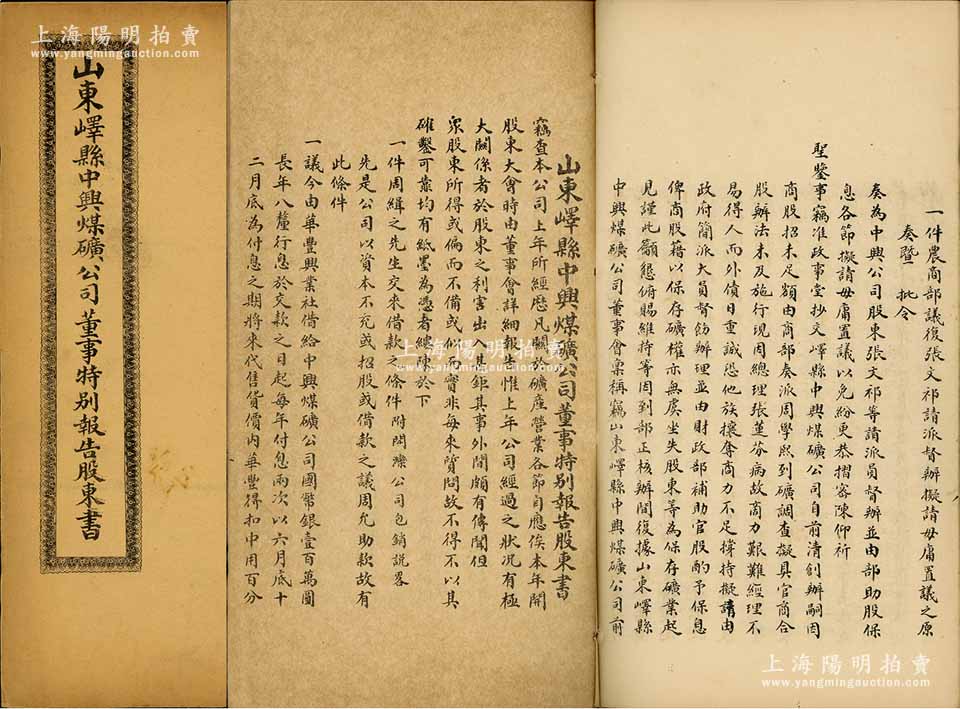 上海陽明拍賣
www.yangmingauction.com
山東嶧縣中興煤礦公司董事特別報告股東書
上海陽明拍賣
www.yangmingauction.com
山東嶧縣中興煤礦公司董事特別報告股東書
竊查本公司上年所經歷凡關於礦產營業各節自應俟本年開
股東大會時由董事會詳細報告惟上年公司經過之狀況有極
大關係者於股東之利害出入甚鉅其事外間頗有傳聞但
眾股東所得或偏而不備或似而實非每來質問故不得不以其
確鑿可靠均有紙墨為憑者縷陳於下
一件周緝之先生交來借款之條件附開灤公司包銷説畧
先是公司以資本不充或招股或借款之議周允助款故有
此條件
一議今由華豐興業社借給中興煤礦公司國幣銀壹百萬圓
長年八釐行息於交款之日起每年付息兩次以六月底十
二月底為付息之期將來代售貨價內華豐得扣中用百分
一件農商部議復張文祁請派督辦擬請毋庸置議之原
奏暨 批令
奏為中興公司股東張文祁等請派員督辦並由部助股保
息各節擬請毋庸置議以免紛更恭摺密陳仰祈
聖鑒事竊准政事堂抄交嶧縣中興煤礦公司自前清創辦嗣因
商股招未足額由商部奏派周學熙到礦調查擬具官商合
股辦法未及施行現周總理張蓮芬病故商力艱難經理不
易得人而外債日重誠恐他族攘奪商力不足撐持擬請由
政府簡派大員督飭辦理並由財政部補助官股酌予保息
俾商股藉以保存礦權亦無虞坐失股東等為保存礦業起
見謹此籲懇俯賜維持等因到部正核辦間復據山東嶧縣
中興煤礦公司董事會稟稱竊山東嶧縣中興煤礦公司前
上海陽明拍賣
www.yangmingauction.com
上海陽明拍賣
www.yangmingauction.com